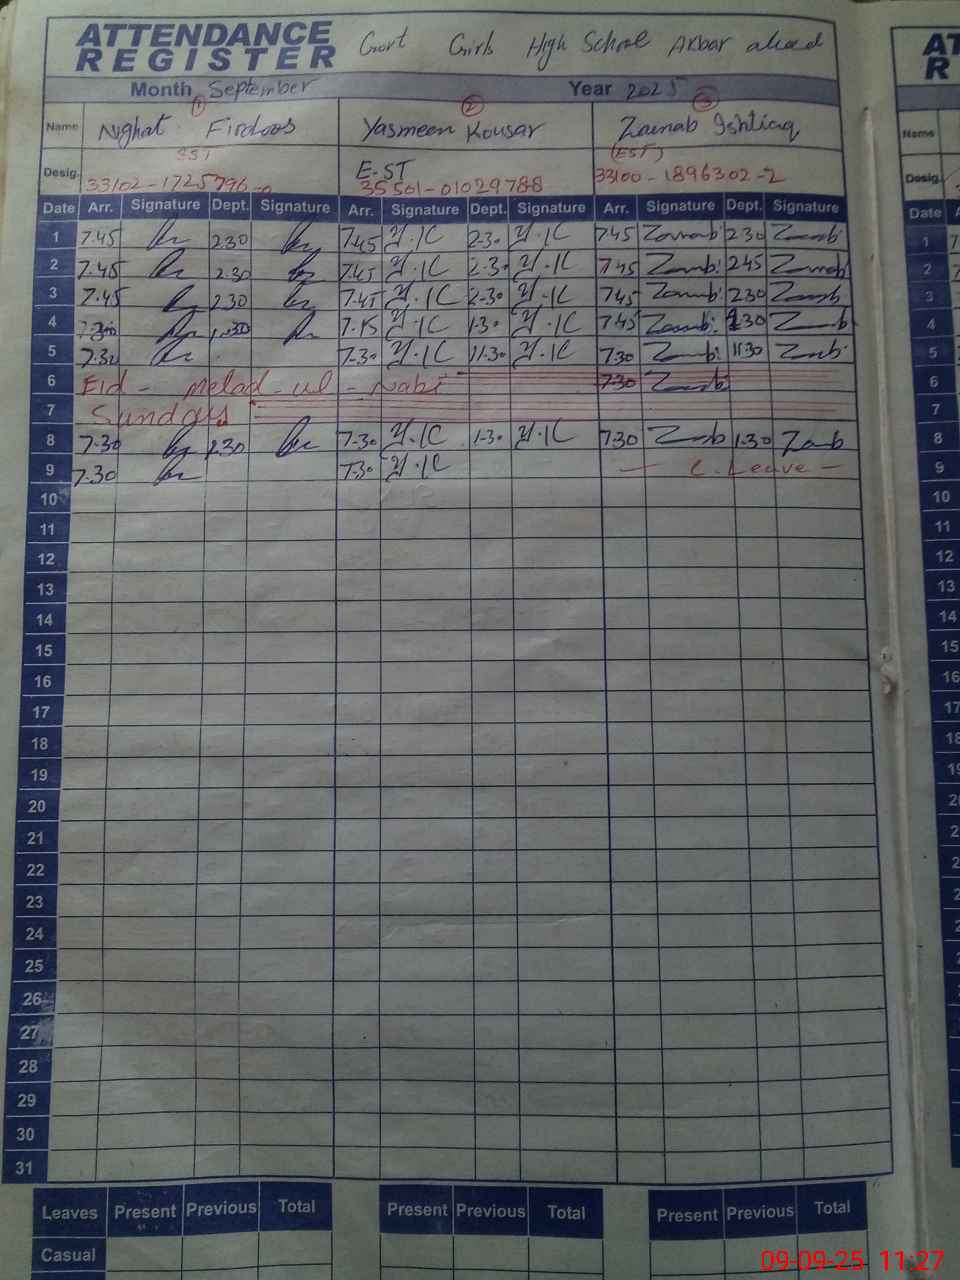 ATTENDANCE REGISTER Govt Girls High School Akbar abad
Month September Year 2025
① ② ③
Name Nighat Firdoos Yasmeen Kousar Zainab Ishtiaq
SST (EST)
Desig. 33102-1725796-0 E-ST 35501-01029788 33100-1896302-2
Date Arr. Signature Dept. Signature Arr. Signature Dept. Signature Arr. Signature Dept. Signature
1 7.45 2.30 7.45 Y.K 2-30 Y.K 7.45 Zainab 2.30 Zainab
2 7.45 2.30 7.45 Y.K 2-30 Y.K 7.45 Zainab 2.45 Zainab
3 7.45 2.30 7.45 Y.K 2-30 Y.K 7.45 Zainab 2.30 Zainab
4 7.30 1.30 7.45 Y.K 1-30 Y.K 7.45 Zainab 1.30 Zainab
5 7.30 7-30 Y.K 11-30 Y.K 7.30 Zainab 11.30 Zainab
6 Eid - melad - ul - Nabi 7.30 Zainab
7 Sunday
8 7-30 1.30 7-30 Y.K 1-30 Y.K 7.30 Zainab 1.30 Zainab
9 7.30 7-30 Y.K - C. Leave -
10
11
12
13
14
15
16
17
18
19
20
21
22
23
24
25
26
27
28
29
30
31
Leaves Present Previous Total Present Previous Total Present Previous Total
Casual
09-09-25 11:27